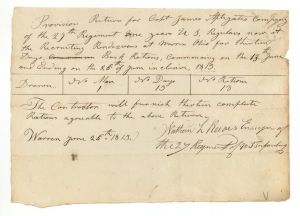 Provision Return for Capt James Applegates Company
of the 27th Regiment one year U S Regulars now at
the Recruiting Rendezvous at Warren Ohio for thirteen
Days Back Rations, Commencing on the 13th June
and Ending on the 25th June inclusive, 1813.
Drawn No Men No Days No Rations
1 13 13
The Contractor will furnish thirteen complete
Rations agreeable to the above Return.
Warren June 26th 1813. Nathan L Reeves Ensign of
the 27 Regment of U S Infantry